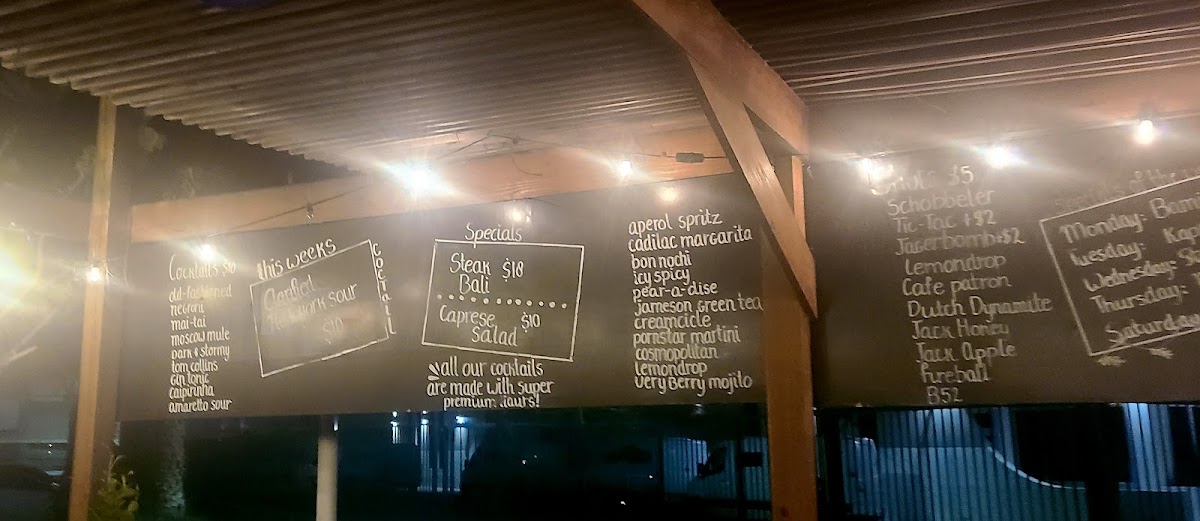 Cocktails $10
old-fashioned
negroni
mai-tai
moscow mule
dark & stormy
tom collins
gin tonic
caipirinha
amaretto sour
this weeks
cocktail
sour
$10
Specials
Steak $18
Bali
Caprese $10
Salad
all our cocktails
are made with super
premium
aperol spritz
cadilac margarita
bon nochi
icy spicy
pear-a-dise
jameson green tea
creamcicle
pornstar martini
cosmopolitan
lemondrop
very Berry mojito
Shots $5
Schobbeler
Tic-Tac +$2
Jagerbomb+$2
Lemondrop
Cafe patron
Dutch Dynamite
Jack Honey
Jack Apple
fireball
B52
Specials of the
Monday:
Tuesday:
Wednesday:
Thursday:
Saturday